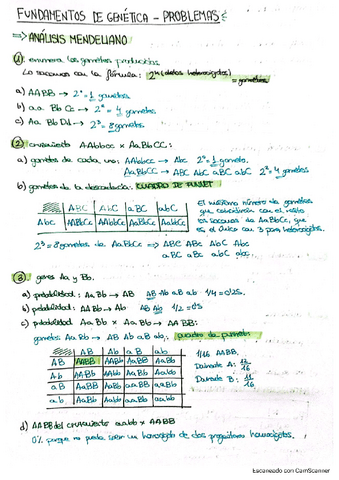 FUNDAMENTOS DE GENÉTICA - PROBLEMAS
=> ANÁLISIS MENDELIANO
① enumera los gametos producidos
Lo sacamos con la fórmula: 2^n (dotos heterocigotos) = gametos
a) AABB → 2^0 = 1 gameto.
b) aa Bb Cc → 2^2 = 4 gametos
c) Aa Bb Dd → 2^3 = 8 gametos.
② cruzamiento AAbbcc x AaBbCC:
a) gametos de cada uno: AAbbcc → Abc 2^0 = 1 gameto.
AaBbCC → ABC AbC aBC abC 2^2 = 4 gametos
b) gametos de la descendencia: CUADRO DE PUNNET
ABC AbC aBC abC
Abc AABbCc AAbbCc AaBbCc AabbCc
El máximo número de gametos
que
es AaBbCc, que
es el único con 3 heterocigotos.
2^3 = 8 gametos de AaBbCc => ABC ABc AbC Abc
aBC aBc abC abc
③ genes Aa y Bb.
a) probabilidad: AaBb → AB AB Ab aB ab 1/4 = 0'25.
b) probabilidad: AABb → Ab AB Ab 1/2 = 0'5
c) probabilidad AaBb x AaBb → AABB:
gametos AaBb → AB Ab aB ab, cuadro de punnet:
AB Ab aB ab
AB AABB AABb AaBB AaBb
Ab AABb AAbb AaBb Aabb
aB AaBB AaBb aaBB aaBb
ab AaBb Aabb aaBb aabb
1/16 AABB,
A: 12/16
B:
d) AABB del cruzamiento aabb x AABB
0% porque no puede salir un homocigoto de dos progenitores homocigotos.
Escaneado con CamScanner